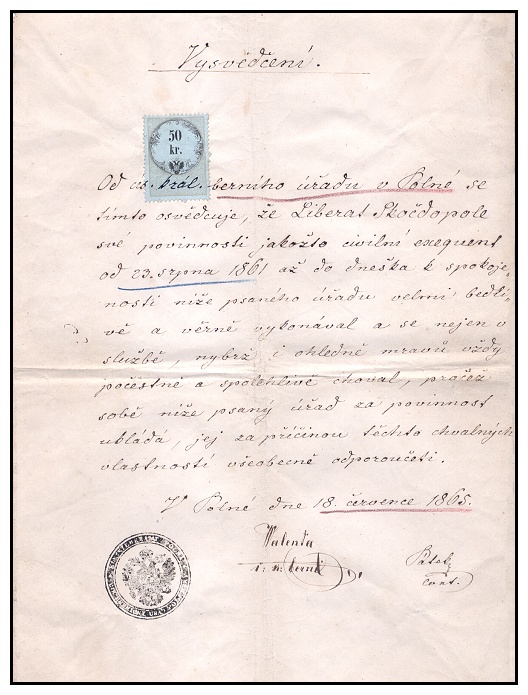 Vysvědčení.
50
kr.
Od cís. král. berního úřadu v Polné se
tímto osvědcuje, že Liberat Skočdopole
své povinnosti jakožto civilní exequent
od 23. srpna 1861 až do dneška k spokoje-
nosti níže psaného úřadu velmi bedli-
vě a věrně vykonával a se nejen v
službě, nybrž i ohledně mravů vždy
počestně a spolehlivě choval, pročež
sobě níže psaný úřad za povinnost
ukládá, jej za příčinou těchto chvalných
vlastností všeobecně odporoučeti.
V Polné dne 18. července 1865.
Walenta
berní
cont.